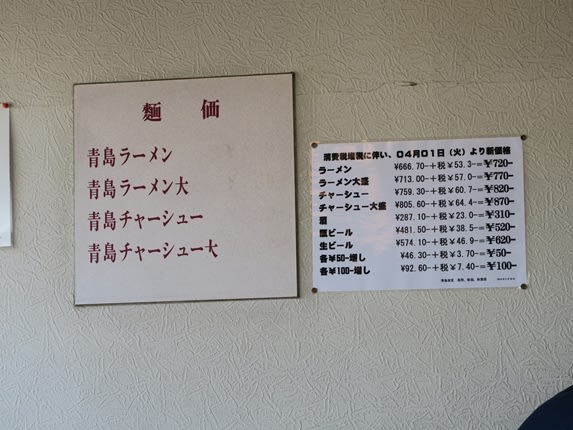 麺 価
青島ラーメン
青島ラーメン大
青島チャーシュー
青島チャーシュー大
消費税増税に伴い、04月01日（火）より新価格
ラーメン ¥666.70-+税¥53.3-=¥720-
ラーメン大盛 ¥713.00-+税¥57.0-=¥770-
チャーシュー ¥759.30-+税¥60.7-=¥820-
チャーシュー大盛 ¥805.60-+税¥64.4-=¥870-
酒 ¥287.10-+税¥23.0-=¥310-
瓶ビール ¥481.50-+税¥38.5-=¥520-
生ビール ¥574.10-+税¥46.9-=¥620-
各¥50-増し ¥46.30-+税¥3.70-=¥50-
各¥100-増し ¥92.60-+税¥7.40-=¥100-